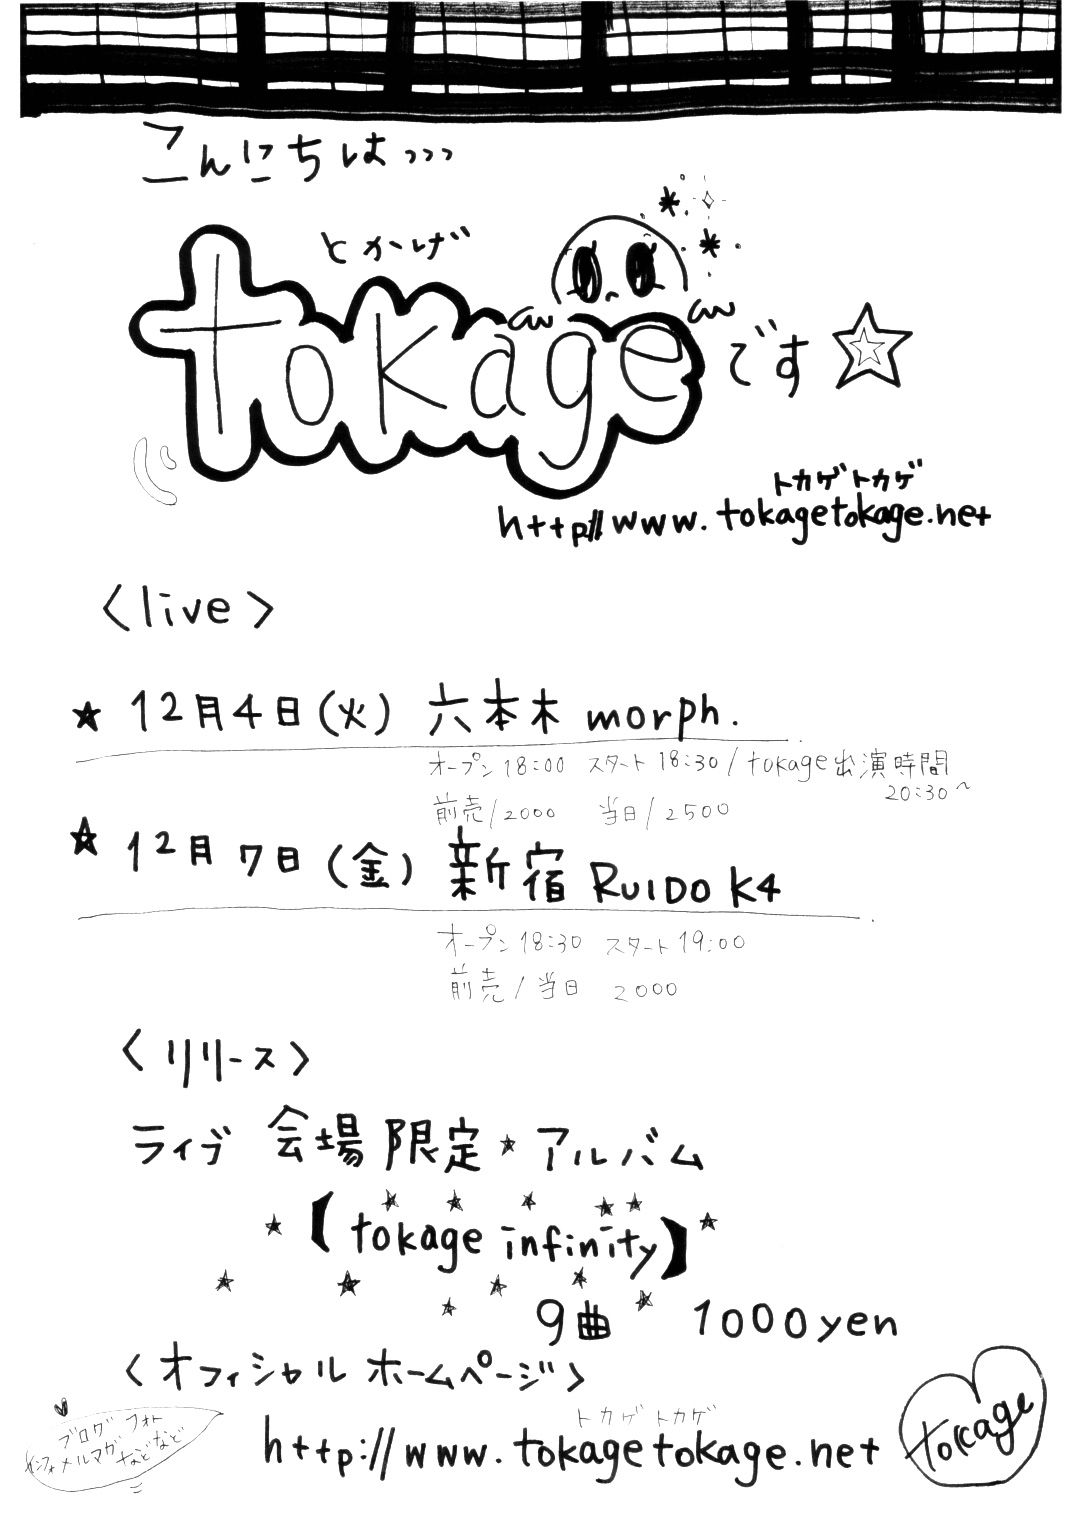 こんにちは、、、
とかげ
tokage です
トカゲトカゲ
http://www.tokagetokage.net
<live>
★ 12月4日(火) 六本木 morph.
オープン18:00 スタート18:30/tokage出演時間
20:30~
前売/2000 当日/2500
★ 12月7日(金) 新宿 RUIDO K4
オープン18:30 スタート19:00
前売/当日 2000
<リリース>
ライブ会場限定★アルバム
【tokage infinity】
9曲 1000yen
<オフィシャルホームページ>
トカゲトカゲ
http://www.tokagetokage.net
ブログ フォト
インフォメルマガ などなど
tokage